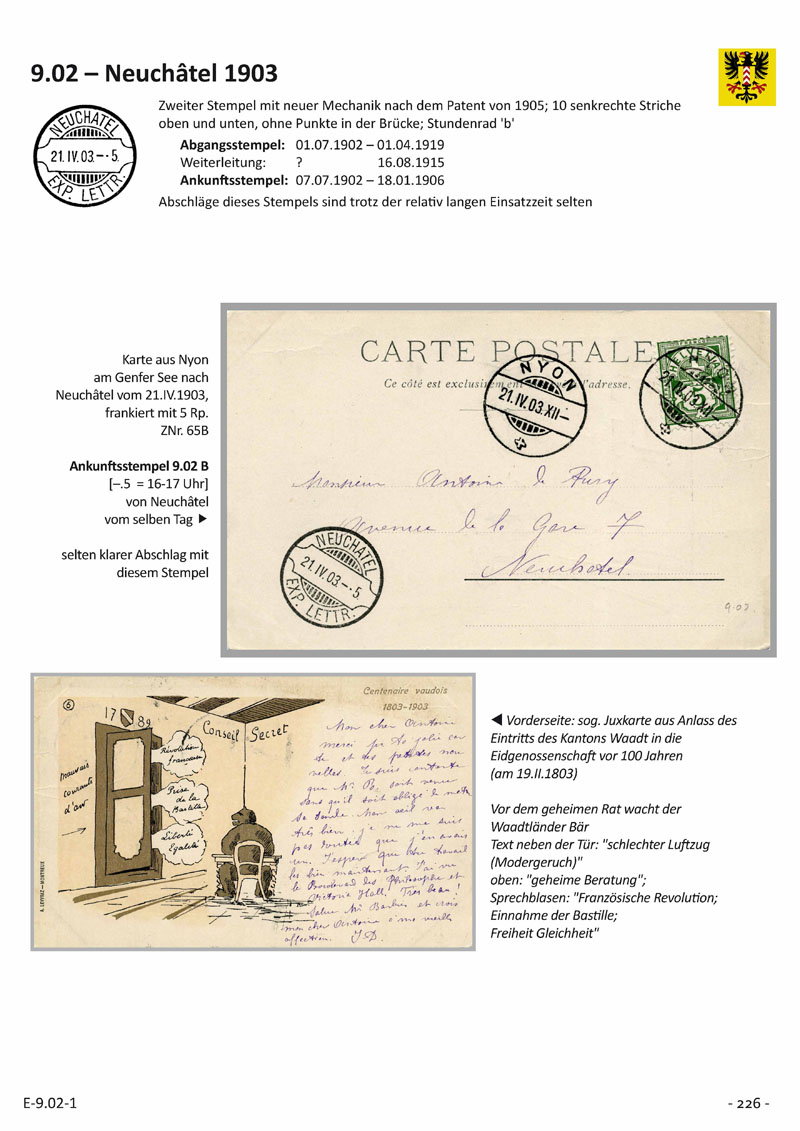 9.02 – Neuchâtel 1903
NEUCHATEL
21.IV.03.–·5.
EXP. LETTR.
Zweiter Stempel mit neuer Mechanik nach dem Patent von 1905; 10 senkrechte Striche
oben und unten, ohne Punkte in der Brücke; Stundenrad 'b'
Abgangsstempel: 01.07.1902 – 01.04.1919
Weiterleitung: ? 16.08.1915
Ankunftsstempel: 07.07.1902 – 18.01.1906
Abschläge dieses Stempels sind trotz der relativ langen Einsatzzeit selten
Karte aus Nyon
am Genfer See nach
Neuchâtel vom 21.IV.1903,
frankiert mit 5 Rp.
ZNr. 65B
Ankunftsstempel 9.02 B
[–.5 = 16-17 Uhr]
von Neuchâtel
vom selben Tag
selten klarer Abschlag mit
diesem Stempel
CARTE POSTALE
Ce côté est exclusivement l'adresse.
NYON
21.IV.03.XII–
Monsieur Antoine de Pury
Avenue de la Gare 7
Neuchatel
NEUCHATEL
21.IV.03.–·5.
EXP. LETTR.
9.02.
6
1789
Centenaire vaudois
1803–1903
Conseil Secret
Révolution
Française
Prise
de la
Bastille
Liberté
Egalité
Mauvais
courants
d'air
Mon cher Antoine
merci
que j'en avais
Victoria Hall. Très beau!
mon cher Antoine à ma vieille
affection. J D.
Vorderseite: sog. Juxkarte aus Anlass des
Eintritts des Kantons Waadt in die
Eidgenossenschaft vor 100 Jahren
(am 19.II.1803)
Vor dem geheimen Rat wacht der
Waadtländer Bär
Text neben der Tür: "schlechter Luftzug
(Modergeruch)"
oben: "geheime Beratung";
Sprechblasen: "Französische Revolution;
Einnahme der Bastille;
Freiheit Gleichheit"
E-9.02-1
- 226 -